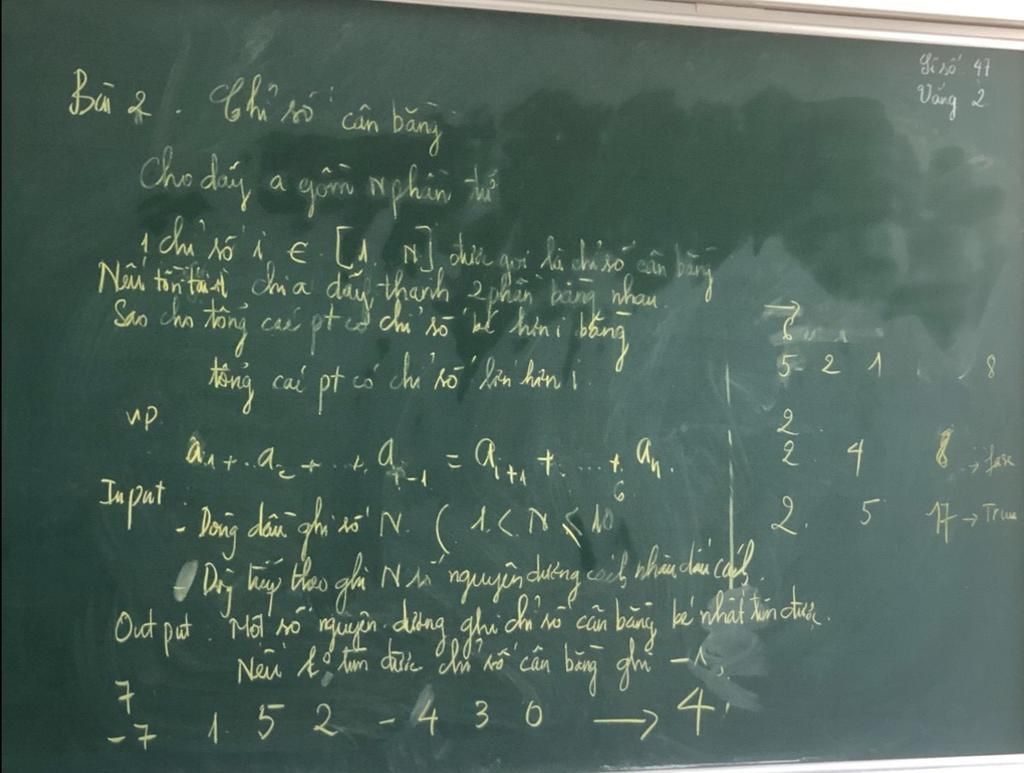 Sĩ số 47
Vắng 2
Bài 2. Chỉ số cân bằng
Cho dãy a gồm N phần tử
1 chỉ số i ∈ [1 N] được gọi là chỉ số cân bằng
Nếu tồn tại i chia dãy thành 2 phần bằng nhau.
Sao cho tổng các pt có chỉ số bé hơn i bằng
tổng các pt có chỉ số lớn hơn i.
VP
a1 + .. a2 + ... + ai-1 = ai+1 + ... + an.
Input
- Dòng đầu ghi số N. ( 1 < N ≤ 10^6
Dòng tiếp theo ghi N số nguyên dương cách nhau dấu cách.
Output. Một số nguyên dương ghi chỉ số cân bằng bé nhất tìm được.
Nếu k° tìm được chỉ số cân bằng ghi -1.
7
-7 1 5 2 -4 3 0 → 4.
→
6
5 2 1 8
2
2 4 8 →
2. 5 17 → True